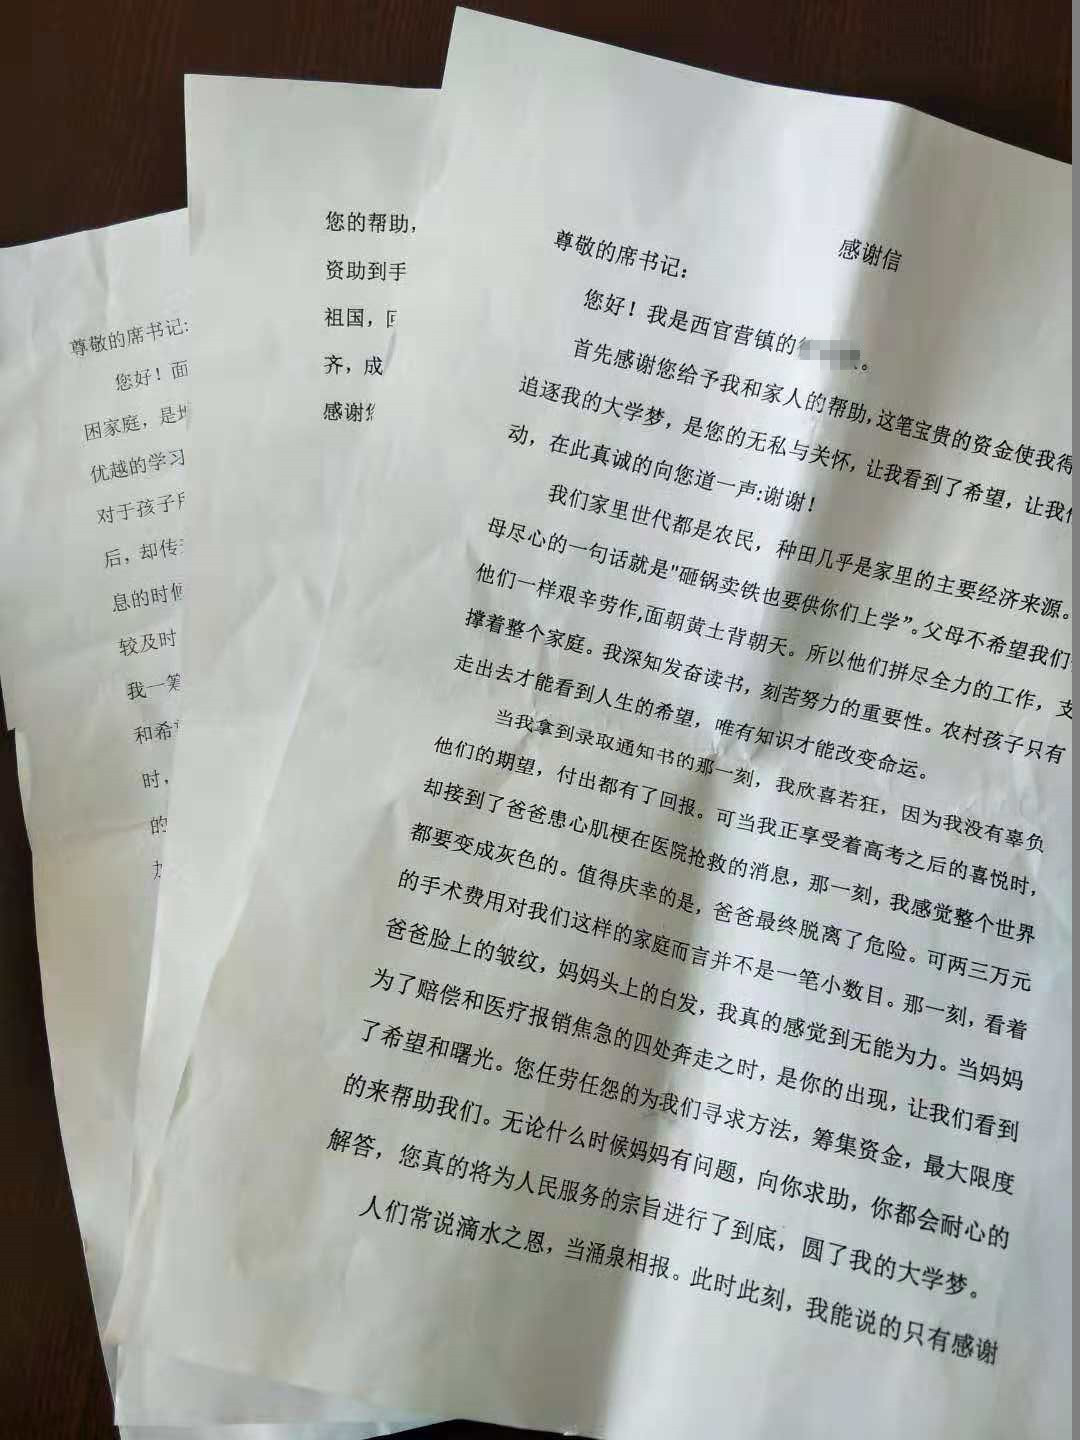 感谢信
尊敬的席书记：
您好！我是西官营镇的
首先感谢您给予我和家人的帮助，这笔宝贵的资金使我得
追逐我的大学梦，是您的无私与关怀，让我看到了希望，让我
动，在此真诚的向您道一声:谢谢！
我们家里世代都是农民，种田几乎是家里的主要经济来源。
母尽心的一句话就是"砸锅卖铁也要供你们上学”。父母不希望我们
他们一样艰辛劳作,面朝黄土背朝天。所以他们拼尽全力的工作，支
撑着整个家庭。我深知发奋读书，刻苦努力的重要性。农村孩子只有
走出去才能看到人生的希望，唯有知识才能改变命运。
当我拿到录取通知书的那一刻，我欣喜若狂，因为我没有辜负
他们的期望，付出都有了回报。可当我正享受着高考之后的喜悦时，
却接到了爸爸患心肌梗在医院抢救的消息，那一刻，我感觉整个世界
都要变成灰色的。值得庆幸的是，爸爸最终脱离了危险。可两三万元
的手术费用对我们这样的家庭而言并不是一笔小数目。那一刻，看着
爸爸脸上的皱纹，妈妈头上的白发，我真的感觉到无能为力。当妈妈
为了赔偿和医疗报销焦急的四处奔走之时，是你的出现，让我们看到
了希望和曙光。您任劳任怨的为我们寻求方法，筹集资金，最大限度
的来帮助我们。无论什么时候妈妈有问题，向你求助，你都会耐心的
解答，您真的将为人民服务的宗旨进行了到底，圆了我的大学梦。
人们常说滴水之恩，当涌泉相报。此时此刻，我能说的只有感谢
您的帮助，
资助到手
祖国，
齐，成
感谢
尊敬的席书记:
您好！面
困家庭，是
优越的学习
对于孩子
后，却传
息的时候
较及时
我一笔
和希
时，
的